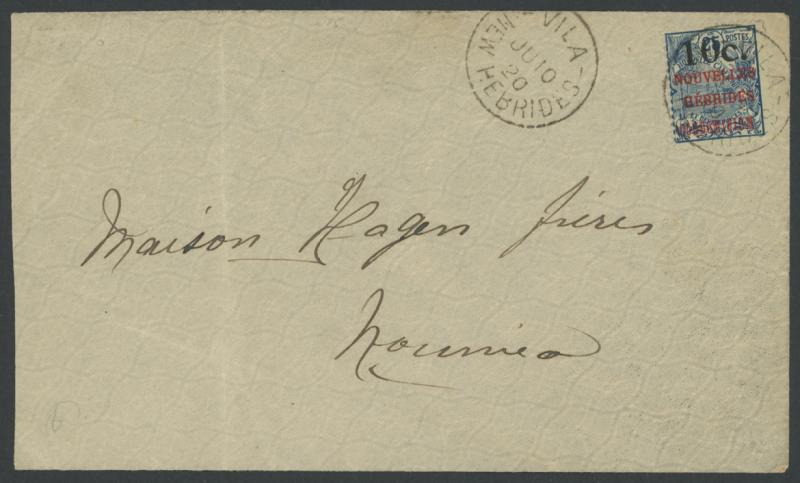 NEW - VILA -
JU 10
20
HEBRIDES
POSTES
10c.
NOUVELLES
HÉBRIDES
VILA
Maison Hagen frères
Nouméa